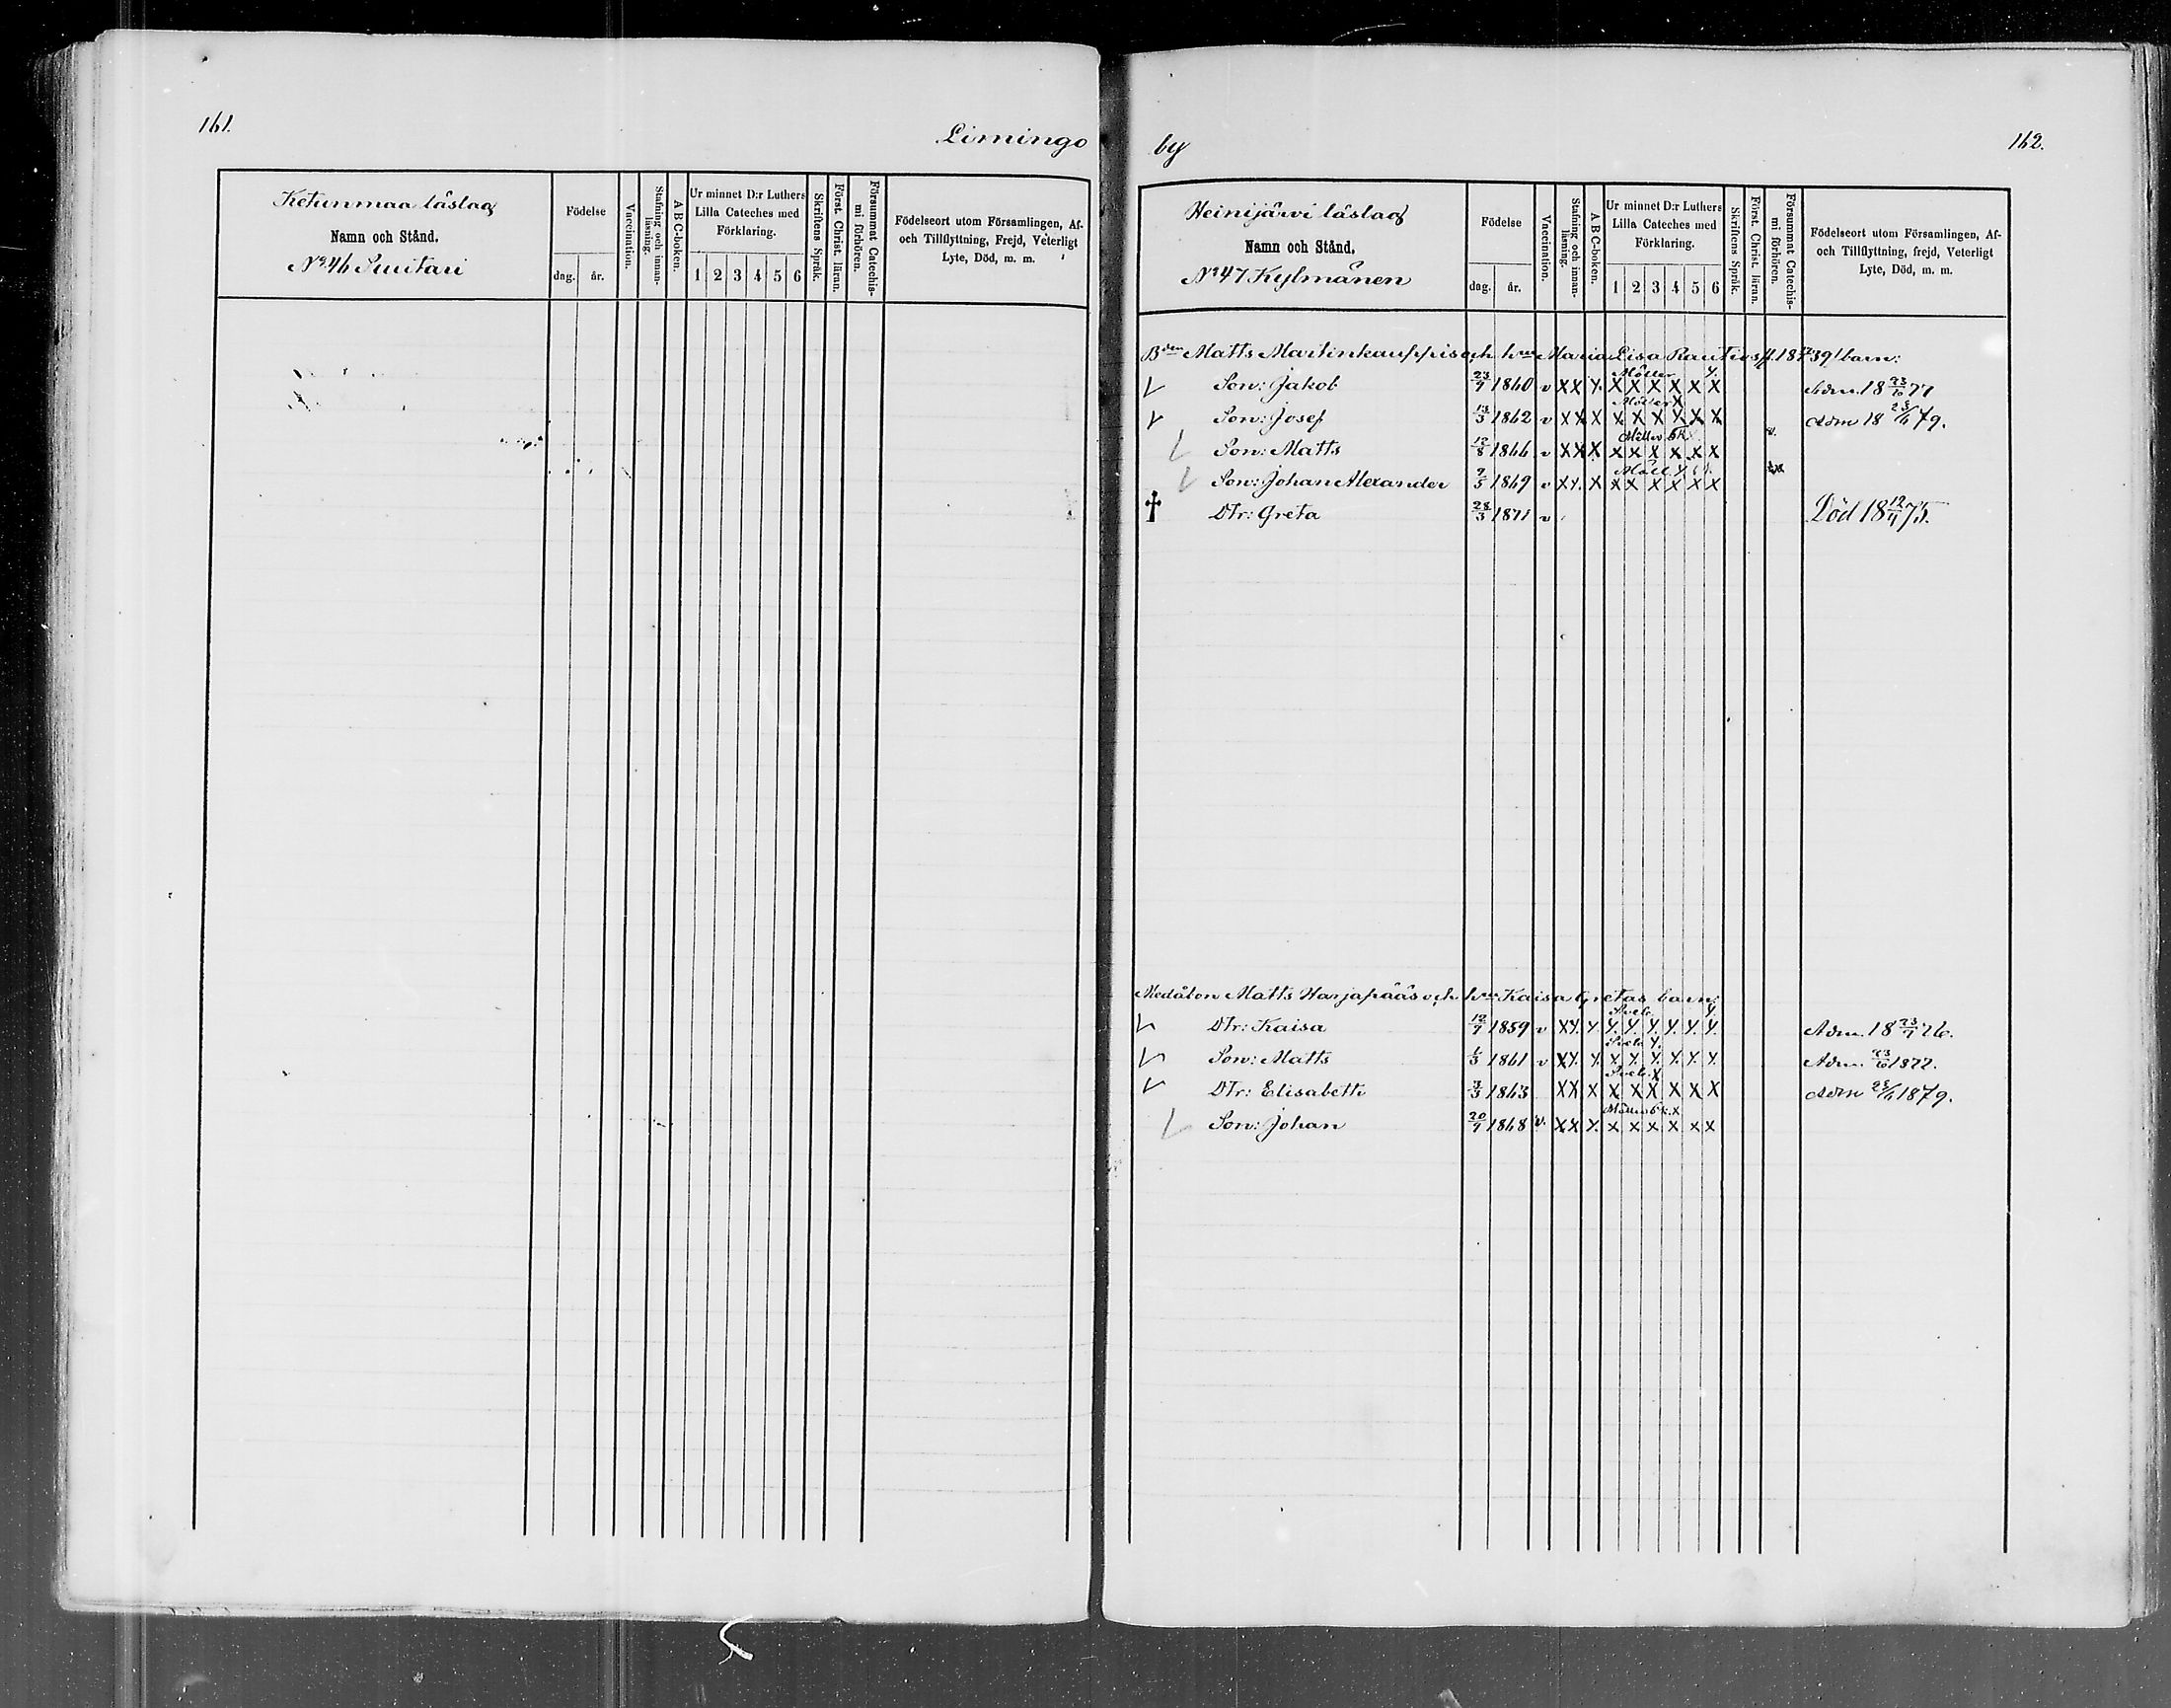 161.
Limingo
Ketunmaa läslag
Namn och Stånd.
No 46 Suutari
Födelse
dag. år.
Vaccination.
Stafning och innan-läsning.
A B C-boken.
Ur minnet D:r Luthers
Lilla Cateches med
Förklaring.
1 2 3 4 5 6
Skriftens Språk.
Först. Christ. läran.
Försummat Catechis-mi förhören.
Födelseort utom Församlingen, Af-
och Tillflyttning, Frejd, Veterligt
Lyte, Död, m. m.
by
162.
Heinijärvi läslag
Namn och Stånd.
No 47 Kylmänen
Födelse
dag. år.
Vaccination.
Stafning och innan-läsning.
A B C-boken.
Ur minnet D:r Luthers
Lilla Cateches med
Förklaring.
1 2 3 4 5 6
Skriftens Språk.
Först. Christ. läran.
Försummat Catechis-mi förhören.
Födelseort utom Församlingen, Af-
och Tillflyttning, frejd, Veterligt
Lyte, Död, m. m.
Bden Matts Martinkauppis och hru Maria Lisa Rautios barn:
Son: Jakob 23/7 1860 v X X X X X X X X X Adm. 18 23/6 77
Son: Josef 13/3 1862 v X X X X X X X X X Adm 18 79.
Son: Matts 12/8 1866 v X X X X X X X X X
Son: Johan Alexander 1869 v X X X X X X X X X
† Dtr: Greta 28/3 1871 v Död 18 75.
Matts Harjapääs och hru Kaisa Gretas barn:
Dtr: Kaisa 12/7 1859 v X X X X X X X X X Adm. 18 76.
Son: Matts 1/3 1861 v X X X X X X X X X Adm. 23/6 1877.
Dtr: Elisabeth 3/3 1863 X X X X X X X X X Adm 1879.
Son: Johan 1868 v. X X X X X X X X X